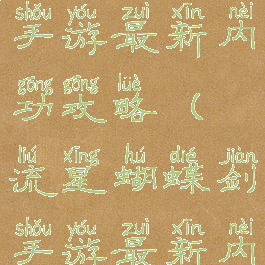 shǒu yóu zuì xīn nèi
手游最新内
gōng gōng lüè
功攻略（
liú xīng hú dié jiàn
流星蝴蝶剑
shǒu yóu zuì xīn nèi
手游最新内